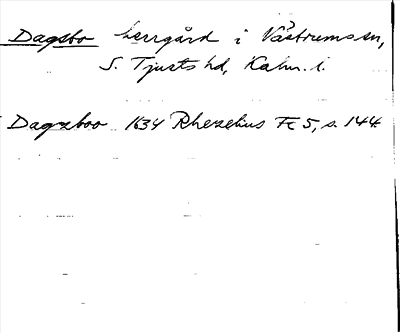 Dagsbo herrgård i Västrums sn,
S. Tjusts hd, Kalm. l.
Dagxboo 1634 Rhezelius Fc 5, s. 144.